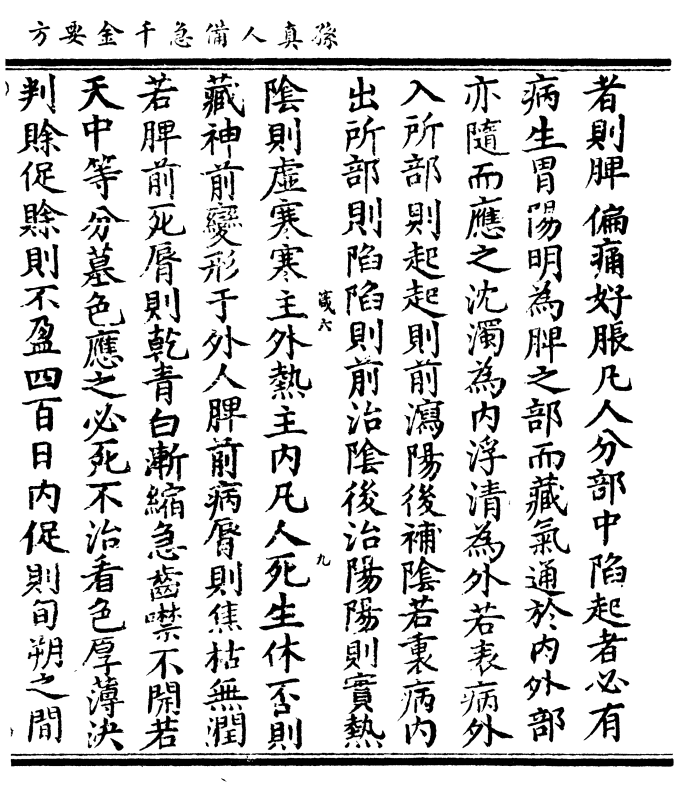 孫真人備急千金要方
者則脾偏痛好脹凡人分部中陷起者必有
病生胃陽明為脾之部而藏氣通於內外部
亦隨而應之沈濁為內浮清為外若表病外
入所部則起起則前瀉陽後補陰若裏病內
出所部則陷陷則前治陰後治陽陽則實熱
咸六
九
陰則虛寒寒主外熱主內凡人死生休否則
藏神前變形于外人脾前病脣則焦枯無潤
若脾前死脣則乾青白漸縮急齒噤不開若
天中等分墓色應之必死不治看色厚薄決
判賒促賒則不盈四百日內促則旬朔之間